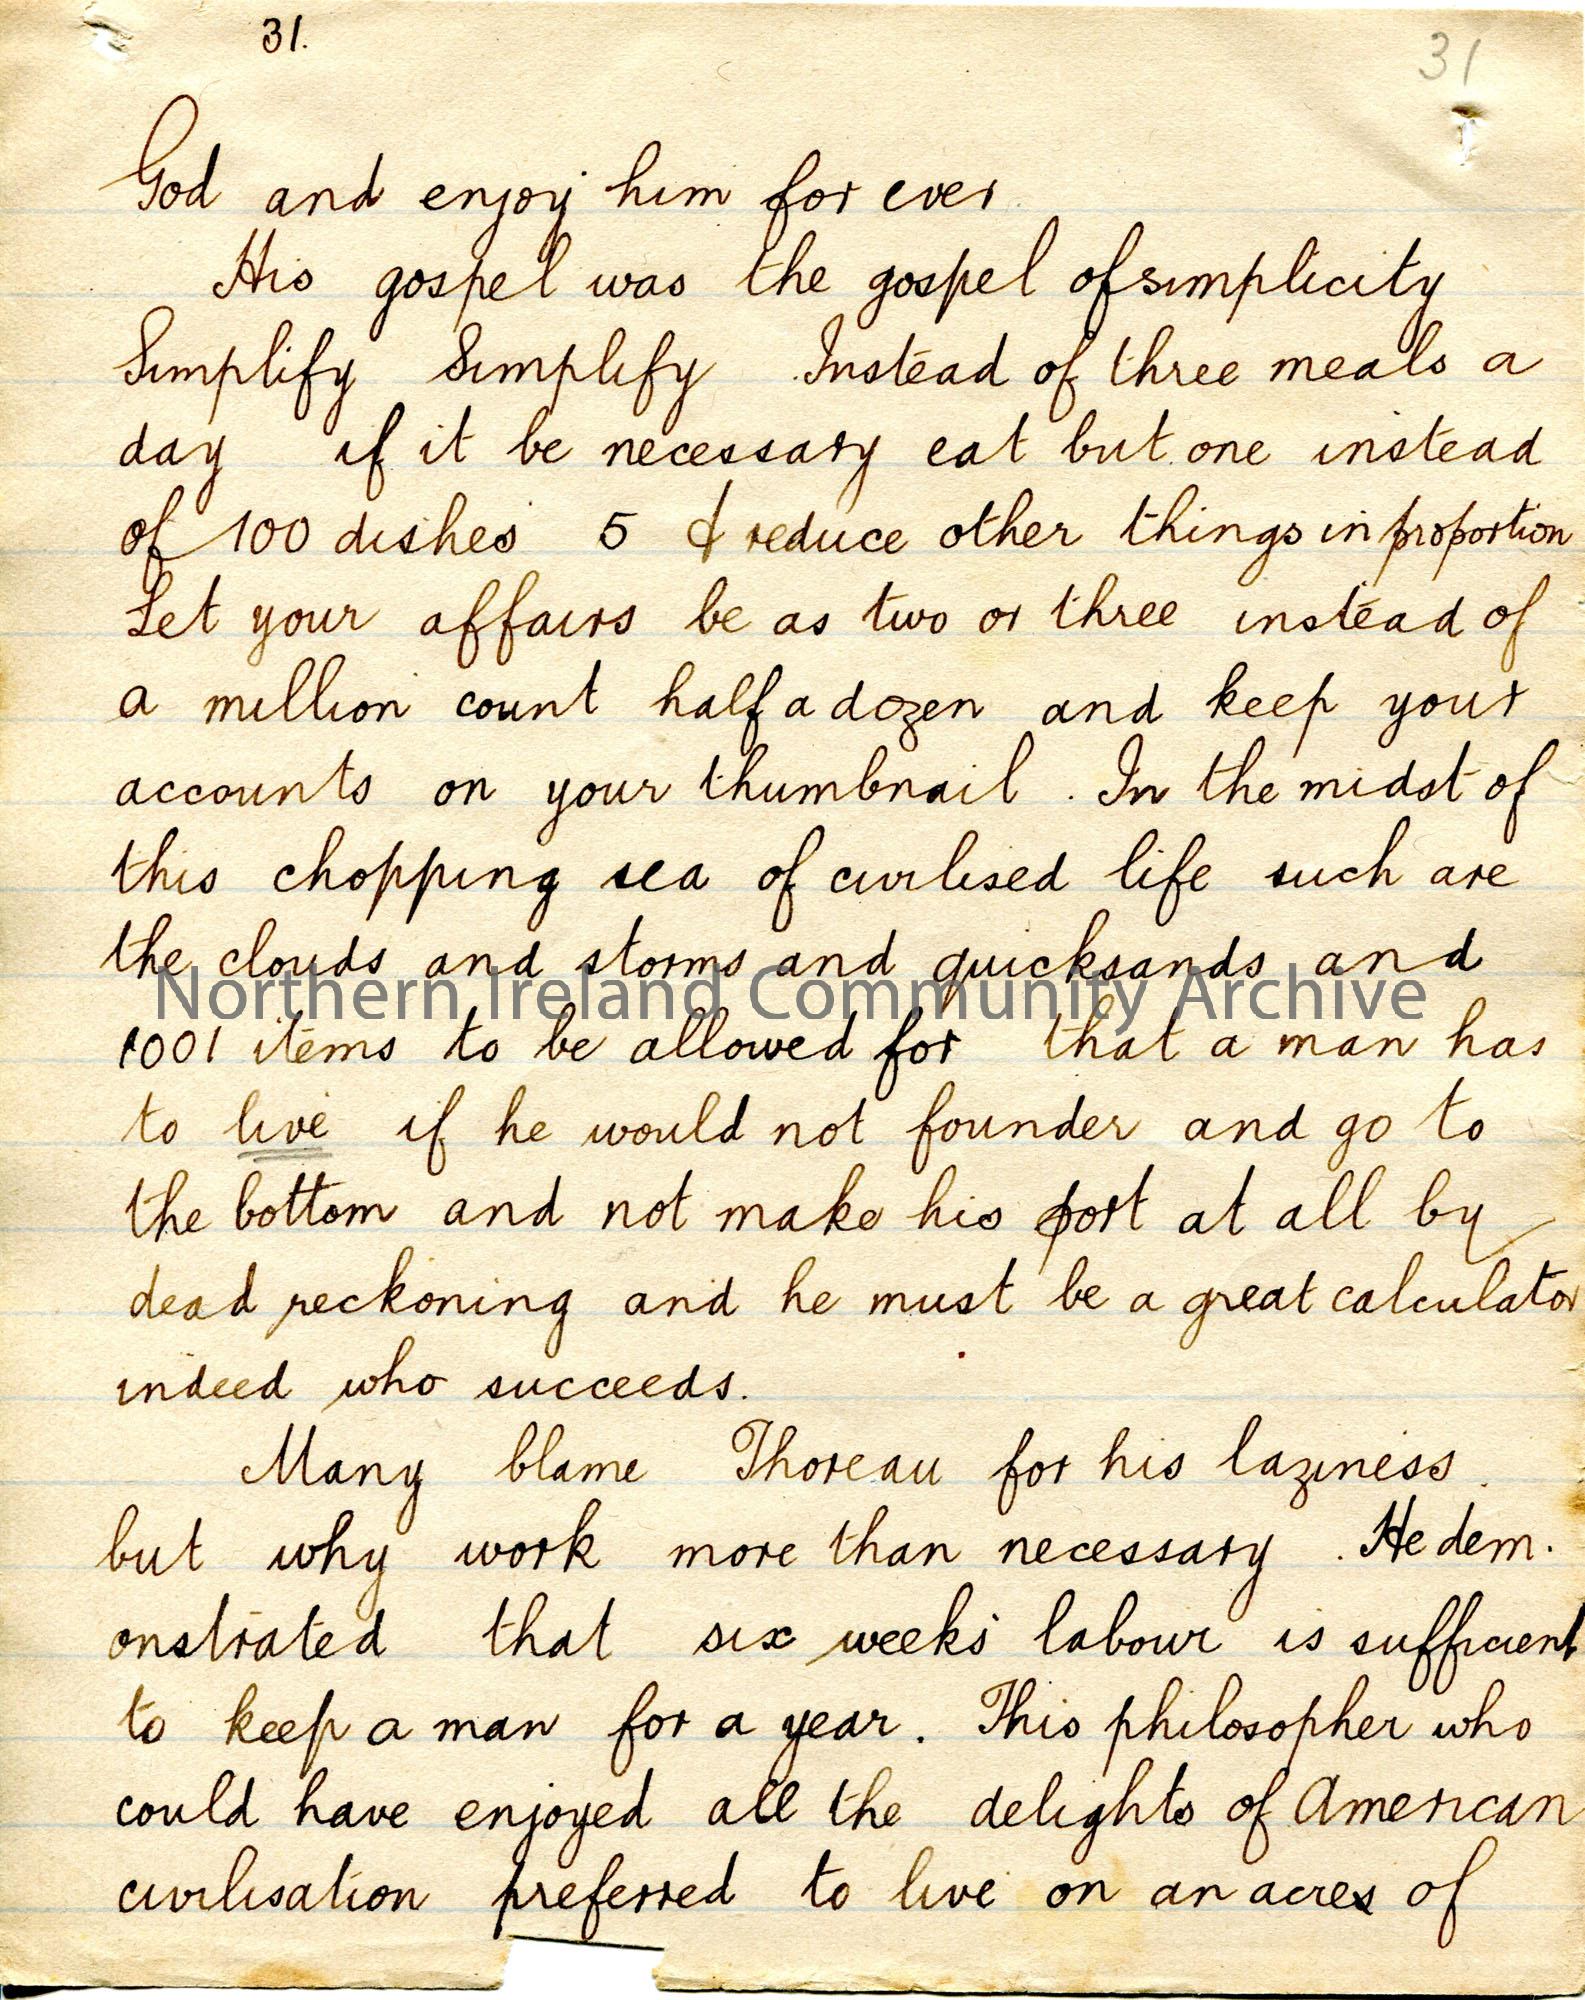 31.
31
God and enjoy him for ever
His gospel was the gospel of simplicity
Simplify Simplify Instead of three meals a
day if it be necessary eat but one instead
of 100 dishes 5 & reduce other things in proportion
Let your affairs be as two or three instead of
a million count half a dozen and keep your
accounts on your thumbnail. In the midst of
this chopping sea of civilised life such are
the clouds and storms and quicksands and
Northern Ireland Community Archive
1001 items to be allowed for that a man has
to live if he would not founder and go to
the bottom and not make his port at all by
dead reckoning and he must be a great calculator
indeed who succeeds.
Many blame Thoreau for his laziness.
but why work more than necessary. He dem.
onstrated that six weeks labour is sufficient
to keep a man for a year. This philosopher who
could have enjoyed all the delights of American
civilisation preferred to live on an acres of